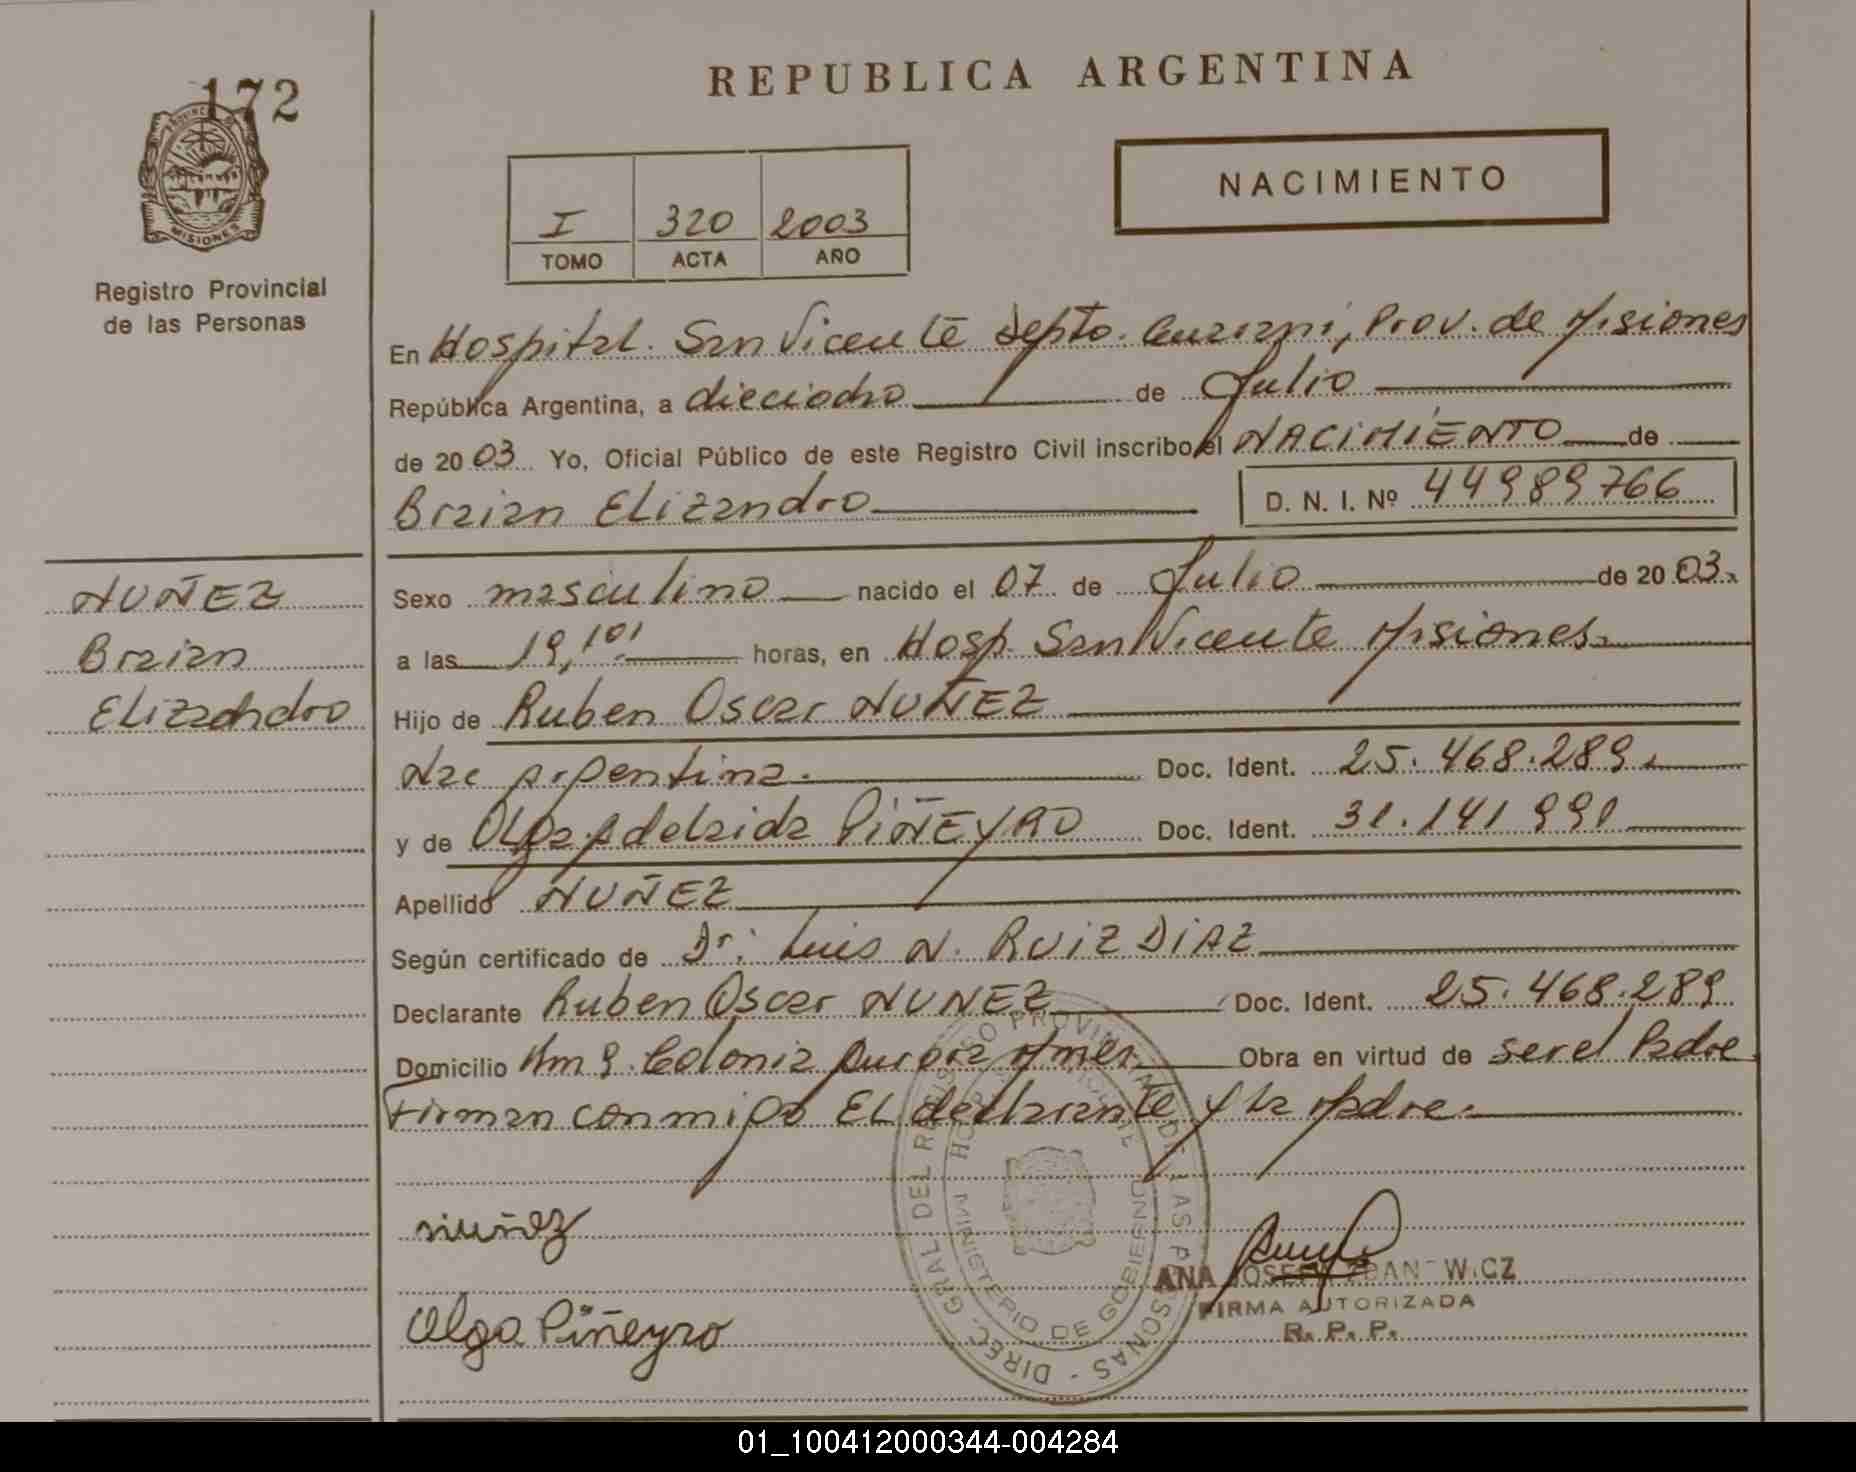 172
PROVINCIA DE
MISIONES
Registro Provincial
de las Personas
REPUBLICA ARGENTINA
NACIMIENTO
I 320 2003
TOMO ACTA AÑO
En Hospital. San Vicente Depto. Guarani, Prov. de Misiones
República Argentina, a dieciocho de Julio
de 2003 Yo, Oficial Público de este Registro Civil inscribo el NACIMIENTO de
Braian Elizandro D. N. I. Nº 44989766
NUÑEZ
Braian
Elizandro
Sexo masculino nacido el 07 de Julio de 2003.
a las 19,10 horas, en Hosp. San Vicente Misiones.
Hijo de Ruben Oscar NUÑEZ
Nac Argentina. Doc. Ident. 25.468.289.
y de Olga Adelaida PIÑEYRO Doc. Ident. 31.141 991
Apellido NUÑEZ
Según certificado de Dr: Luis N. RUIZ DIAZ
Declarante Ruben Oscar NUNEZ Doc. Ident. 25.468.289
Domicilio Km 9. Colonia Aurora Mnes. Obra en virtud de ser el Padre
Firman conmigo EL declarante y la Madre.
nuñez
Olga Piñeyro
DIREC. GRAL DEL REGISTRO PROVINCIAL DE LAS PERSONAS
MINISTERIO DE GOBIERNO
ANA
FIRMA AUTORIZADA
R. P. P.
01_100412000344-004284